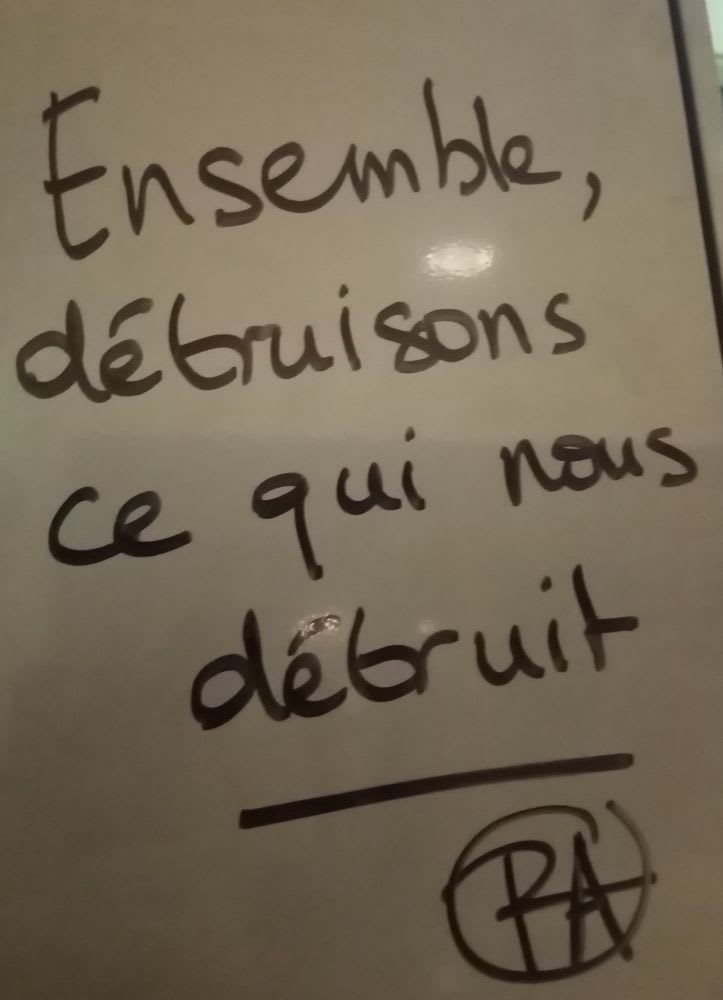 Ensemble,
détruisons
ce qui nous
détruit
PA